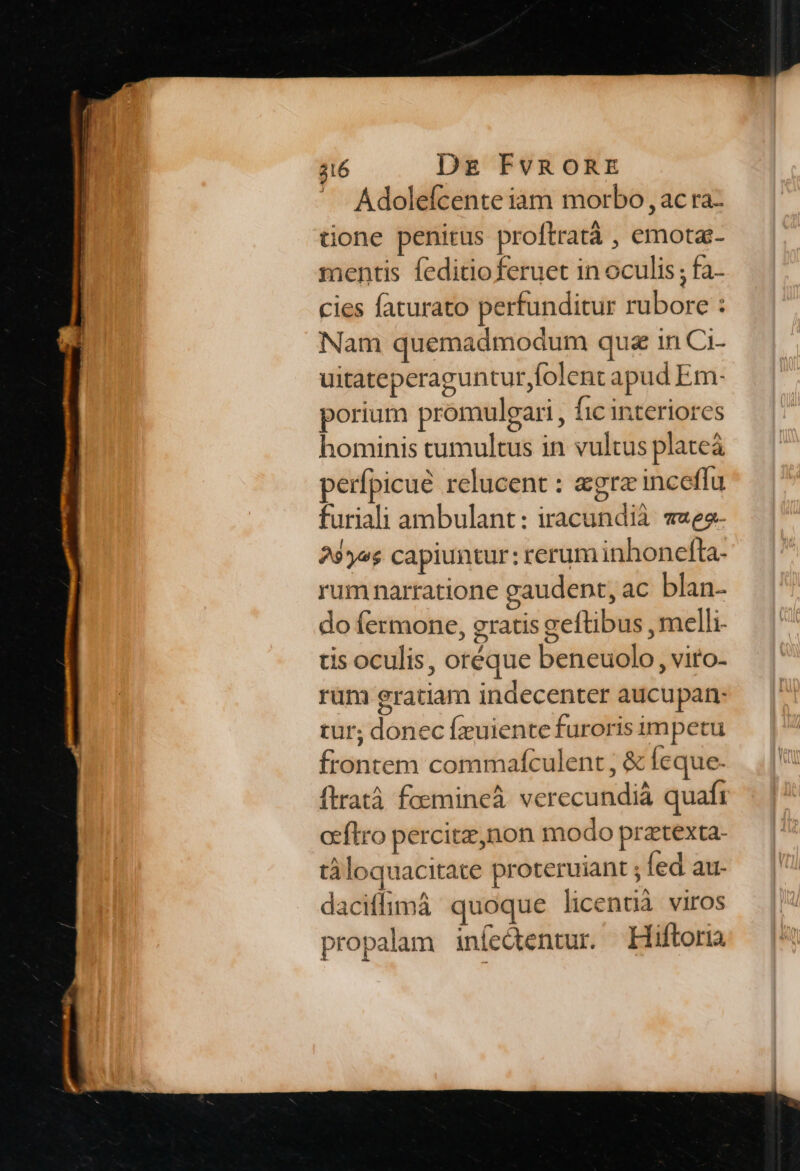 316 DE FVRORE
Adoleſcente iam morbo, ac ra-
tione penitus proſtratâ, emotæ-
mentis ſeditio feruet in oculis; fa-
cies ſaturato perfunditur rubore :
Nam quemadmodum quæ in Ci-
uitate peraguntur, ſolent apud Em-
porium promulgari, ſic interiores
hominis tumultus in vultus plateâ
perſpicuè relucent : ægræ inceſſu
furiali ambulant: iracundiâ παρα-
λόγως capiuntur: rerum inhoneſta-
rum narratione gaudent, ac blan-
do ſermone, gratis geſtibus, melli-
tis oculis, oréque beneuolo, viro-
rum gratiam indecenter aucupan-
tur; donec ſæuiente furoris impetu
frontem commaſculent, & ſeque-
ſtratâ fœmineâ verecundiâ quaſi
œſtro percitæ, non modo prætexta-
tâ loquacitate proteruiant; ſed au-
daciſſimâ quoque licentiâ viros
propalam inſectentur. Hiſtoria